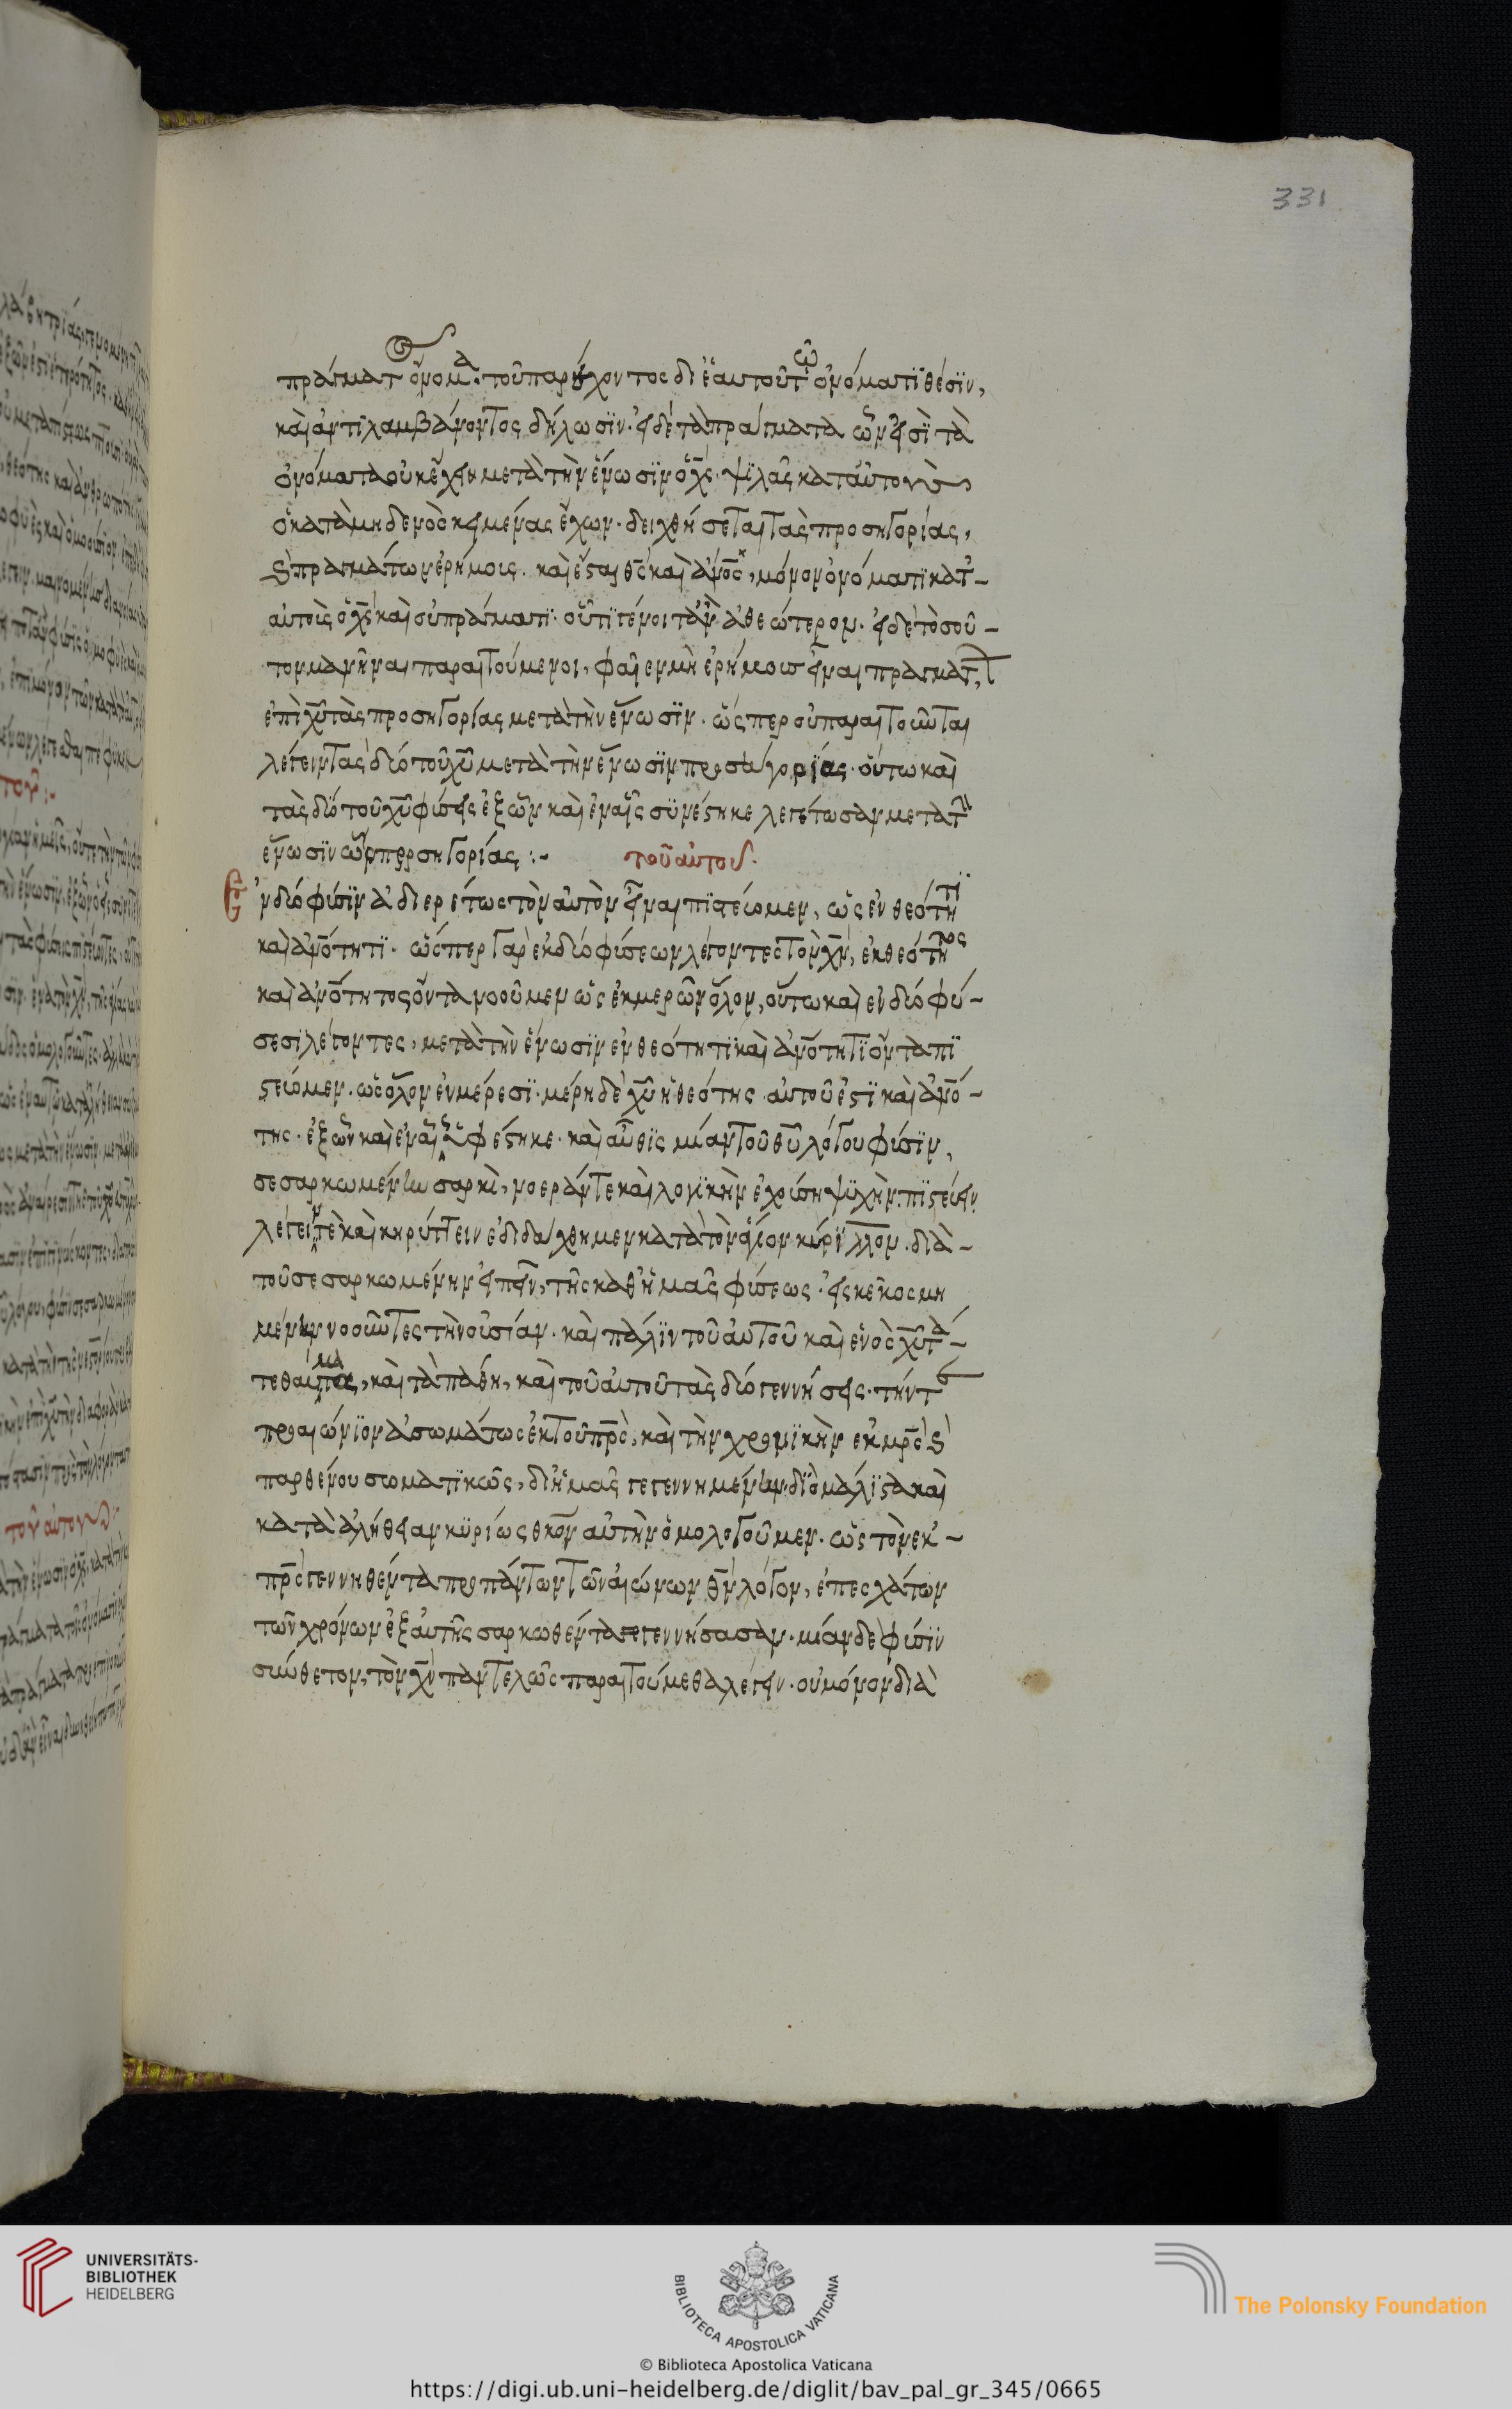 331
πράγματ ὄνομα. τοῦ παρέχοντος δι ἑαυτοῦ τῶ ὀνόματι θέσιν,
καὶ ἀντιλαμβάνοντος δήλωσιν. εἰ δὲ τὰ πράγματα ὧν εἰσὶ τὰ
ὀνόματα οὐκ ἔχειν μετὰ τὴν ἕνωσιν ὁ χς. ψιλὰς κατ αὐτοὺς
ὁ κατὰ μηδενὸς κειμένας ἔχων. δειχθήσεται τὰς προσηγορίας,
ϛ πραγμάτων ἐρήμοις. καὶ ἔσται θς καὶ ἄνος, μόνον ὀνόματι κατ-
αὐτοὺς ὁ χς καὶ οὐ πράγματι. οὗ τί γένοιτ ἂν ἀθεώτερον. εἰ δὲ τὸ σοῦ-
τον μανῆναι παραιτούμενοι, φαῖεν μὴ ἐρήμους εἶναι πραγμάτ
ἐπὶ χυ τὰς προσηγορίας μετὰ τὴν ἕνωσιν. ὥσπερ οὐ παραιτοῦνται
λέγειν τὰς δύο τοῦ χυ μετὰ τὴν ἕνωσιν προσηγορίας. οὕτω καὶ
τὰς δύο τοῦ χυ φύσεις ἐξ ὧν καὶ ἐν αἷς συνέστηκε λεγέτωσαν μετὰ τὴν
ἕνωσιν ὥσπερ προσηγορίας :-
τοῦ αὐτοῦ.
Ἐν δύο φύσιν ἀδιερέτως τὸν αὐτὸν εἶναι πιστεύομεν, ὡς ἐν θεότητι
καὶ ἀνότητι. ὥσπερ γὰρ ἐκ δύο φύσεων λέγοντες τὸν χν, ἐκ θεότητος
καὶ ἀνότητος ὄντα νοοῦμεν ὡς ἐκ μερῶν ὅλον, οὕτω καὶ ἐν δύο φύ-
σεσι λέγοντες, μετὰ τὴν ἕνωσιν ἐν θεότητι καὶ ἀνότητι ὄντα πι
στεύομεν. ὡς ὅλον ἐν μέρεσι. μέρη δὲ χυ ἡ θεότης αὐτοῦ ἐστὶ καὶ ἀνό-
της. ἐξ ὧν καὶ ἐν αἷς ὑφέστηκε. καὶ αὖθις μίαν τοῦ θυ λόγου φύσιν,
σεσαρκωμένην σαρκὶ, νοεράν τε καὶ λογικὴν ἐχούση ψυχὴν. πιστεύειν
λέγειν τὲ καὶ κηρύττειν ἐδιδάχθημεν κατὰ τὸν ἅγιον κύριλλον. διὰ-
τοῦ σεσαρκωμένην εἰπεῖν, τῆς καθ ἡμᾶς φύσεως. εἰσκεκοσμη
μένην νοοῦντες τὴν οὐσίαν. καὶ πάλιν τοῦ αὐτοῦ καὶ ἑνὸς χυ τά-
τε θαύματα, καὶ τὰ πάθη, καὶ τοῦ αὐτοῦ τὰς δύο γεννήσεις. τήν τε
προαιώνιον ἀσωμάτως ἐκ τοῦ πρς, καὶ τὴν χρονικὴν ἐκ μρς ϛ
παρθένου σωματικῶς, δι ἡμᾶς γεγεννημένην. διὸ μάλιστα καὶ
κατὰ ἀλήθειαν κυρίως θκον αὐτὴν ὁμολογοῦμεν. ὡς τὸν ἐκ-
πρς γεννηθέντα προ πάντων τῶν αἰώνων θν λόγον, ἐπεσχάτων
τῶν χρόνων ἐξ αὐτῆς σαρκωθέντα γεγεννήσασαν. μίαν δὲ φύσιν
σύνθετον, τὸν χν παντελῶς παραιτούμεθα λέγειν. οὐ μόνον διὰ
UNIVERSITÄTS-
BIBLIOTHEK
HEIDELBERG
BIBLIOTECA APOSTOLICA VATICANA
The Polonsky Foundation
© Biblioteca Apostolica Vaticana
https://digi.ub.uni-heidelberg.de/diglit/bav_pal_gr_345/0665